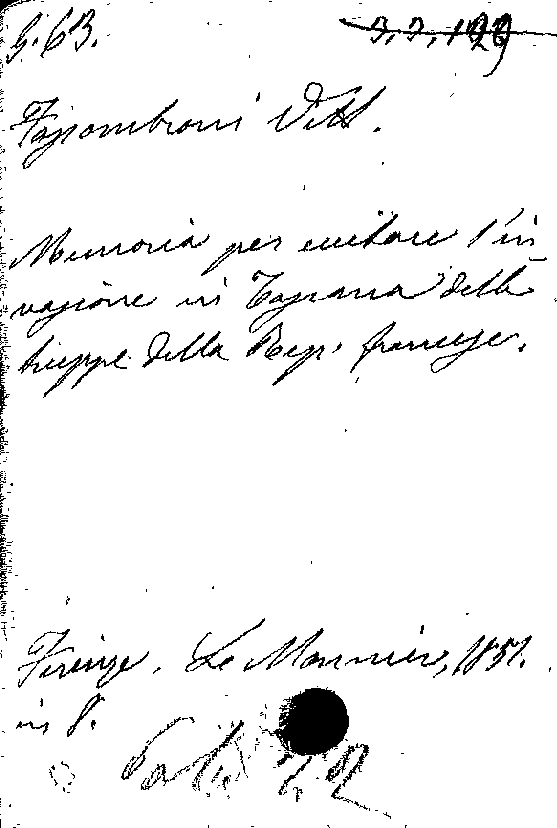 G. 63.
3. 3. 129
Fossombroni Vitt.
Memoria per evitare l'in
vasione in Toscana delle
truppe della Rep. francese.
Firenze, Le Monnier, 1851.
in 8.